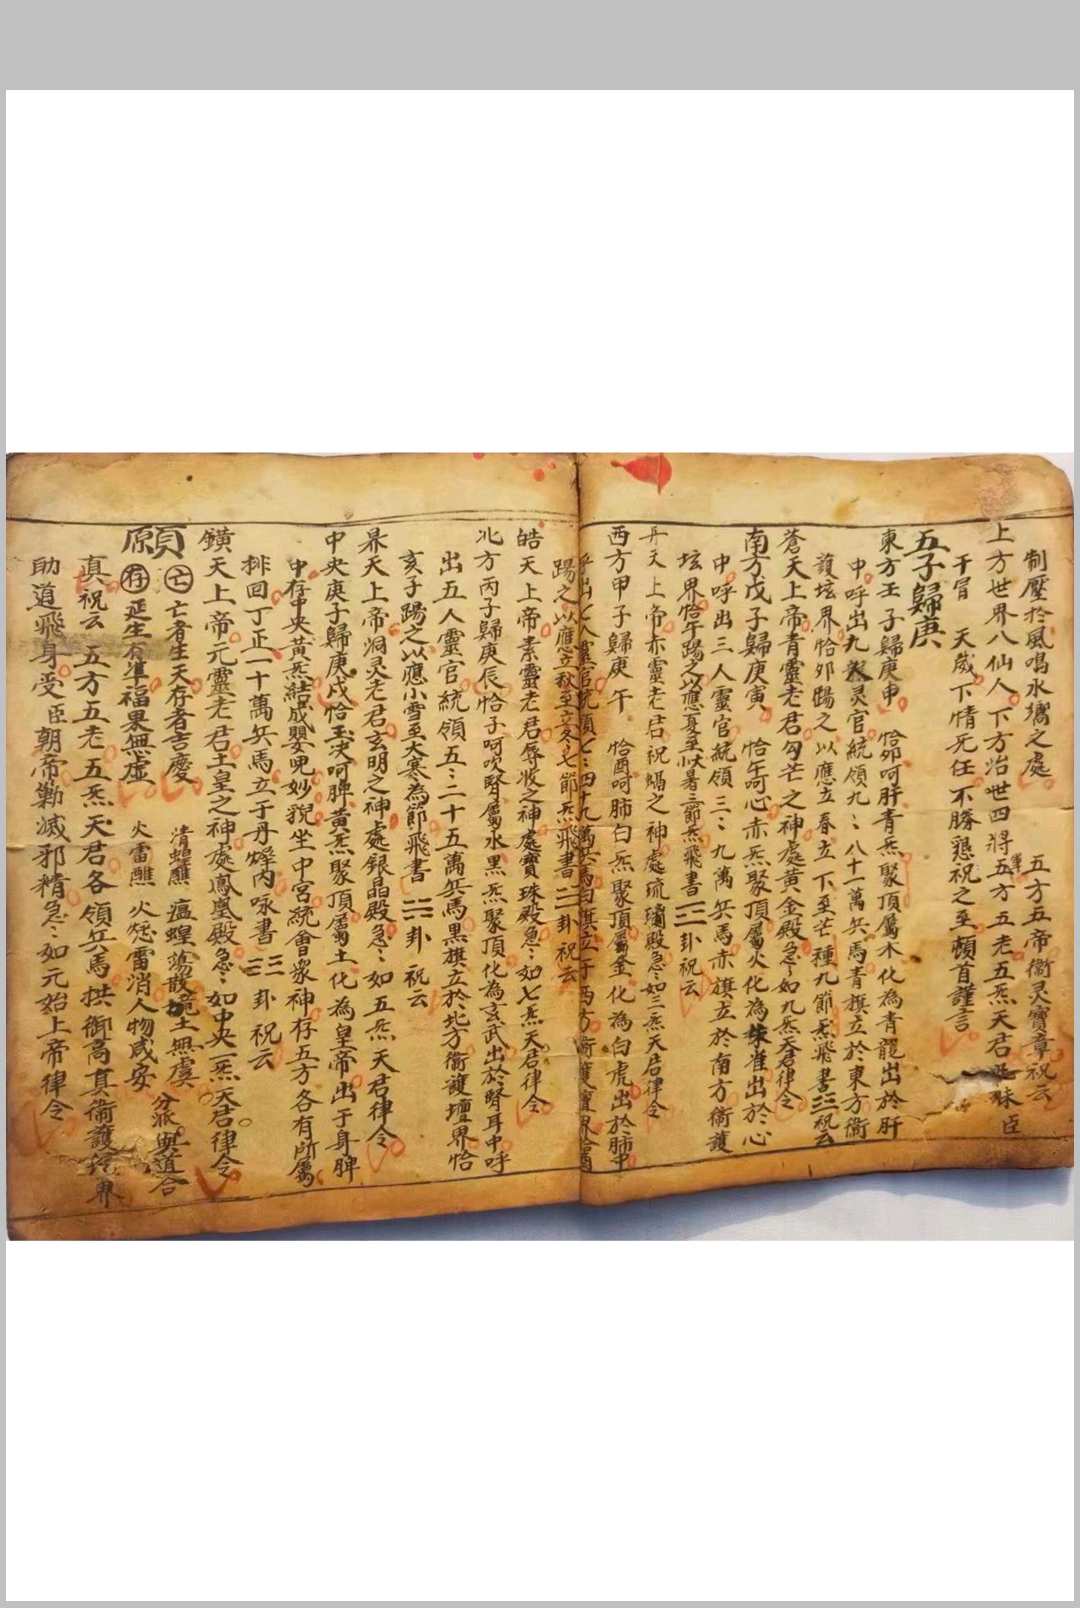 制壓於風鳴水嚮之處 五方五帝衛灵寶章祝云
上方世界八仙人下方治世四將五方五老五炁天君 臣
干冒 天威下情無任不勝懇祝之至頓首謹言
五子歸庚
東方壬子歸庚申 恰卯呵肝青炁聚頂屬木化為青龍出於肝
中呼出九炁灵官統領九〻八十一萬兵馬青旗立於東方衛
護坛界恰卯踢之以應立春立下至芒種九節炁飛書☳祝云
蒼天上帝青靈老君勾芒之神處黃金殿急〻如九炁天君律令
南方戊子歸庚寅 恰午呵心赤炁聚頂屬火化為朱雀出於心
中呼出三人靈官統領三〻九萬兵馬赤旗立於南方衛護
坛界恰午踢之以應夏至小大暑三節炁飛書☲卦祝云
丹天上帝赤靈老君祝螎之神處琉璃殿急〻如三炁天君律令
西方甲子歸庚午 恰酉呵肺白炁聚頂屬金化為白虎出於肺中
呼出七人靈官統領七〻四十九萬兵馬白旗立于西方衛護壇界恰酉
踢之以應立秋至立冬七節炁飛書☱卦祝云
皓天上帝素靈老君辱收之神處寶珠殿急〻如七炁天君律令
北方丙子歸庚辰恰子呵吹腎屬水黑炁聚頂化為玄武出於腎耳中呼
出五人靈官統領五〻二十五萬兵馬黑旗立於北方衛護壇界恰
亥子踢之以應小雪至大寒為節飛書☵卦 祝云
昦天上帝洞灵老君玄明之神處銀晶殿急〻如五炁天君律令
中央庚子歸庚戌恰玉決呵脾黃炁聚頂屬土化為皇帝出于身脾
中存中央黃炁結成嬰兒妙貌坐中宮統會衆神存五方各有所屬
排回丁正一十萬兵馬立于丹墀內咏書☷卦祝云
鐄天上帝元靈老君土皇之神處鳳凰殿急〻如中央一炁天君律令
願 亡 亡者生天存者吉慶 清蝗醮 瘟蝗蕩散境土無虞 分派與道合
存 延生有準福果無虛 火雷醮 火𤆬雷消人物咸安
真祝云五方五老五炁天君各領兵馬拱御高真衛護 界
助道飛身受臣朝帝勦滅邪精急〻如元始上帝律令